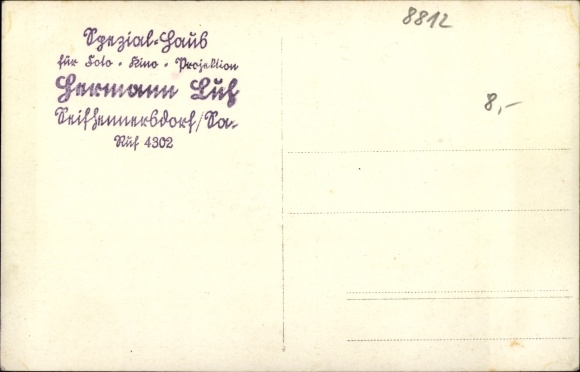 8812
Spezial-Haus
für Foto · Kino · Projektion
Hermann Luh
Seifhennersdorf/Sa.
Ruf 4302
8,-